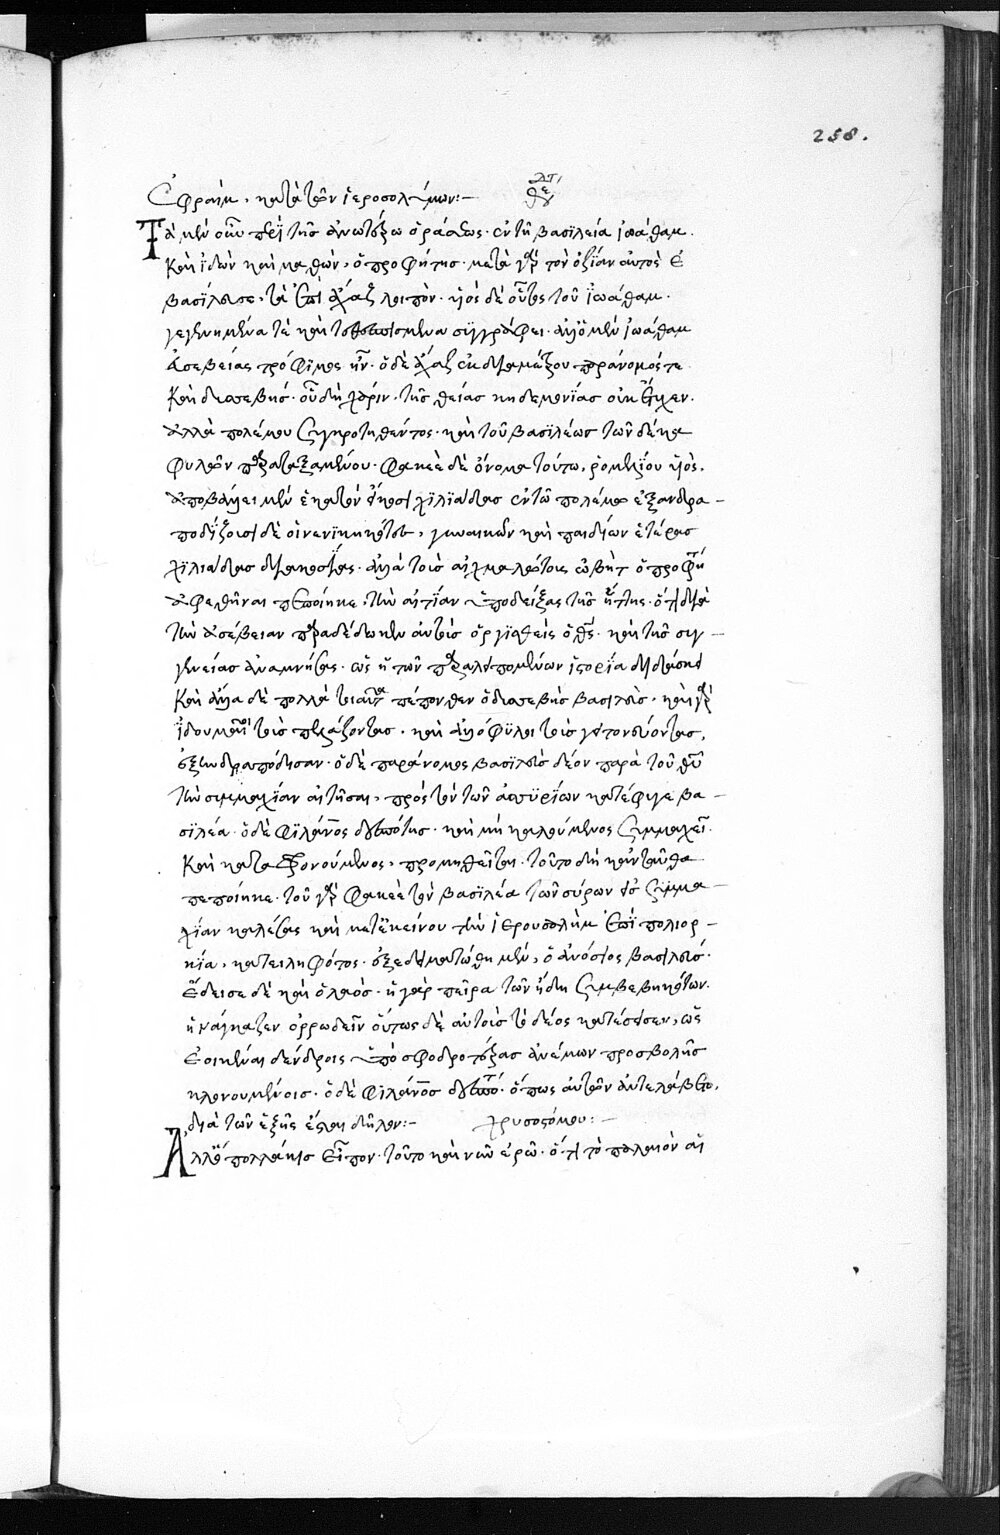 258.
Ἐφραὶμ, κατὰ τῶν ἱεροσολύμων:—
Τὰ μὲν οὖν περὶ τῆς ἀνωτέρω ὁράσεως. ἐν τῇ βασιλεία ἰωάθαμ.
Καὶ ἰδὼν καὶ μαθὼν, ὁ προφήτης. μετὰ γὰρ τὸν ὀζίαν αὐτὸς ἐ
βασίλευσε, τὰ ἐπὶ ἄχαζ λοιπὸν. υἱὸς δὲ οὗτος τοῦ ἰωάθαμ.
γεγενημένα τὲ καὶ τεθεσπισμένα συγγράφει. ἀλλ' ὁ μὲν ἰωάθαμ
εὐσεβείας τρόφιμος ἦν. ὁ δὲ ἄχαζ ἐκ διαμέτρου παράνομός τε
Καὶ δυσσεβής. οὗ δὴ χάριν, τῆς θείας κηδεμονίας οὐκ ἔτυχεν.
ἀλλὰ πολέμου συγκροτηθέντος. καὶ τοῦ βασιλέως τῶν δέκα
φυλῶν παραταξαμένου. φακεὲ δὲ ὄνομα τούτω, ῥομελίου υἱὸς,
ἀποβάλλει μὲν ἑκατὸν εἴκοσι χιλιάδας ἐν τῶ πολέμω ἐξανδρα-
ποδίζουσι δὲ οἱ νενικηκότες, γυναικῶν καὶ παιδίων ἑτέρας
χιλιάδας διακοσίας. ἀλλὰ τοὺς αἰχμαλώτους ὠβὴτ ὁ προφή
ἀφεθῆναι πεποίηκε, τὴν αἰτίαν ὑποδείξας τῆς ἥττης. ὅτι διὰ
τὴν ἀσέβειαν παραδέδωκεν αὐτοὺς ὀργισθεὶς ὁ θς. καὶ τῆς συγ-
γενείας ἀναμνήσας. ὡς ἡ τῶν παραλειπομένων ἱστορία διδάσκει
Καὶ ἄλλα δὲ πολλὰ τοιαῦτα πέπονθεν ὁ δυσσεβὴς βασιλεὺς. καὶ γὰρ
ἰδουμαῖοι τοὺς πελάζοντας. καὶ ἀλλόφυλοι τοὺς γειτονεύοντας,
ἐξηνδραπόδισαν. ὁ δὲ παράνομος βασιλεὺς δέον παρὰ τοῦ θυ
τὴν συμμαχίαν αἰτῆσαι, πρὸς τὸν τῶν ἀσσυρίων κατέφυγε βα-
σιλέα. ὁ δὲ φιλάνος δεσπότης. καὶ μὴ καλούμενος συμμαχεῖ.
Καὶ καταφρονούμενος, προμηθεῖται. τοῦτο δὴ κἀνταῦθα
πεποίηκε. τοῦ γὰρ φακεὲ τὸν βασιλέα τῶν σύρων εἰς συμμα-
χίαν καλέσας καὶ μετ' ἐκείνου τὴν ἱερουσαλὴμ ἐπὶ πολιορ-
κία, κατειληφότος. ἐξεδειματώθη μὲν, ὁ ἀνόσιος βασιλεὺς.
Ἔδεισε δὲ καὶ ὁ λαὸς. ἡ γὰρ πεῖρα τῶν ἤδη συμβεβηκότων.
ἠνάγκαζεν ὀρρωδεῖν οὕτως δὲ αὐτοὺς τὸ δέος κατέσεισεν, ὡς
ἐοικέναι δένδροις ὑπὸ σφοδροτέρας ἀνέμων προσβολῆς
κλονουμένοις. ὁ δὲ φιλάνος δεσπό. ὅπως αὐτῶν ἀντελάβετο,
διὰ τῶν ἑξῆς ἐστι δῆλον:— χρυσοστόμου:—
Ἀλλ' ὃ πολλάκις εἶπον. τοῦτο καὶ νῦν ἐρῶ. ὅτι τὸ παλαιὸν αἱ